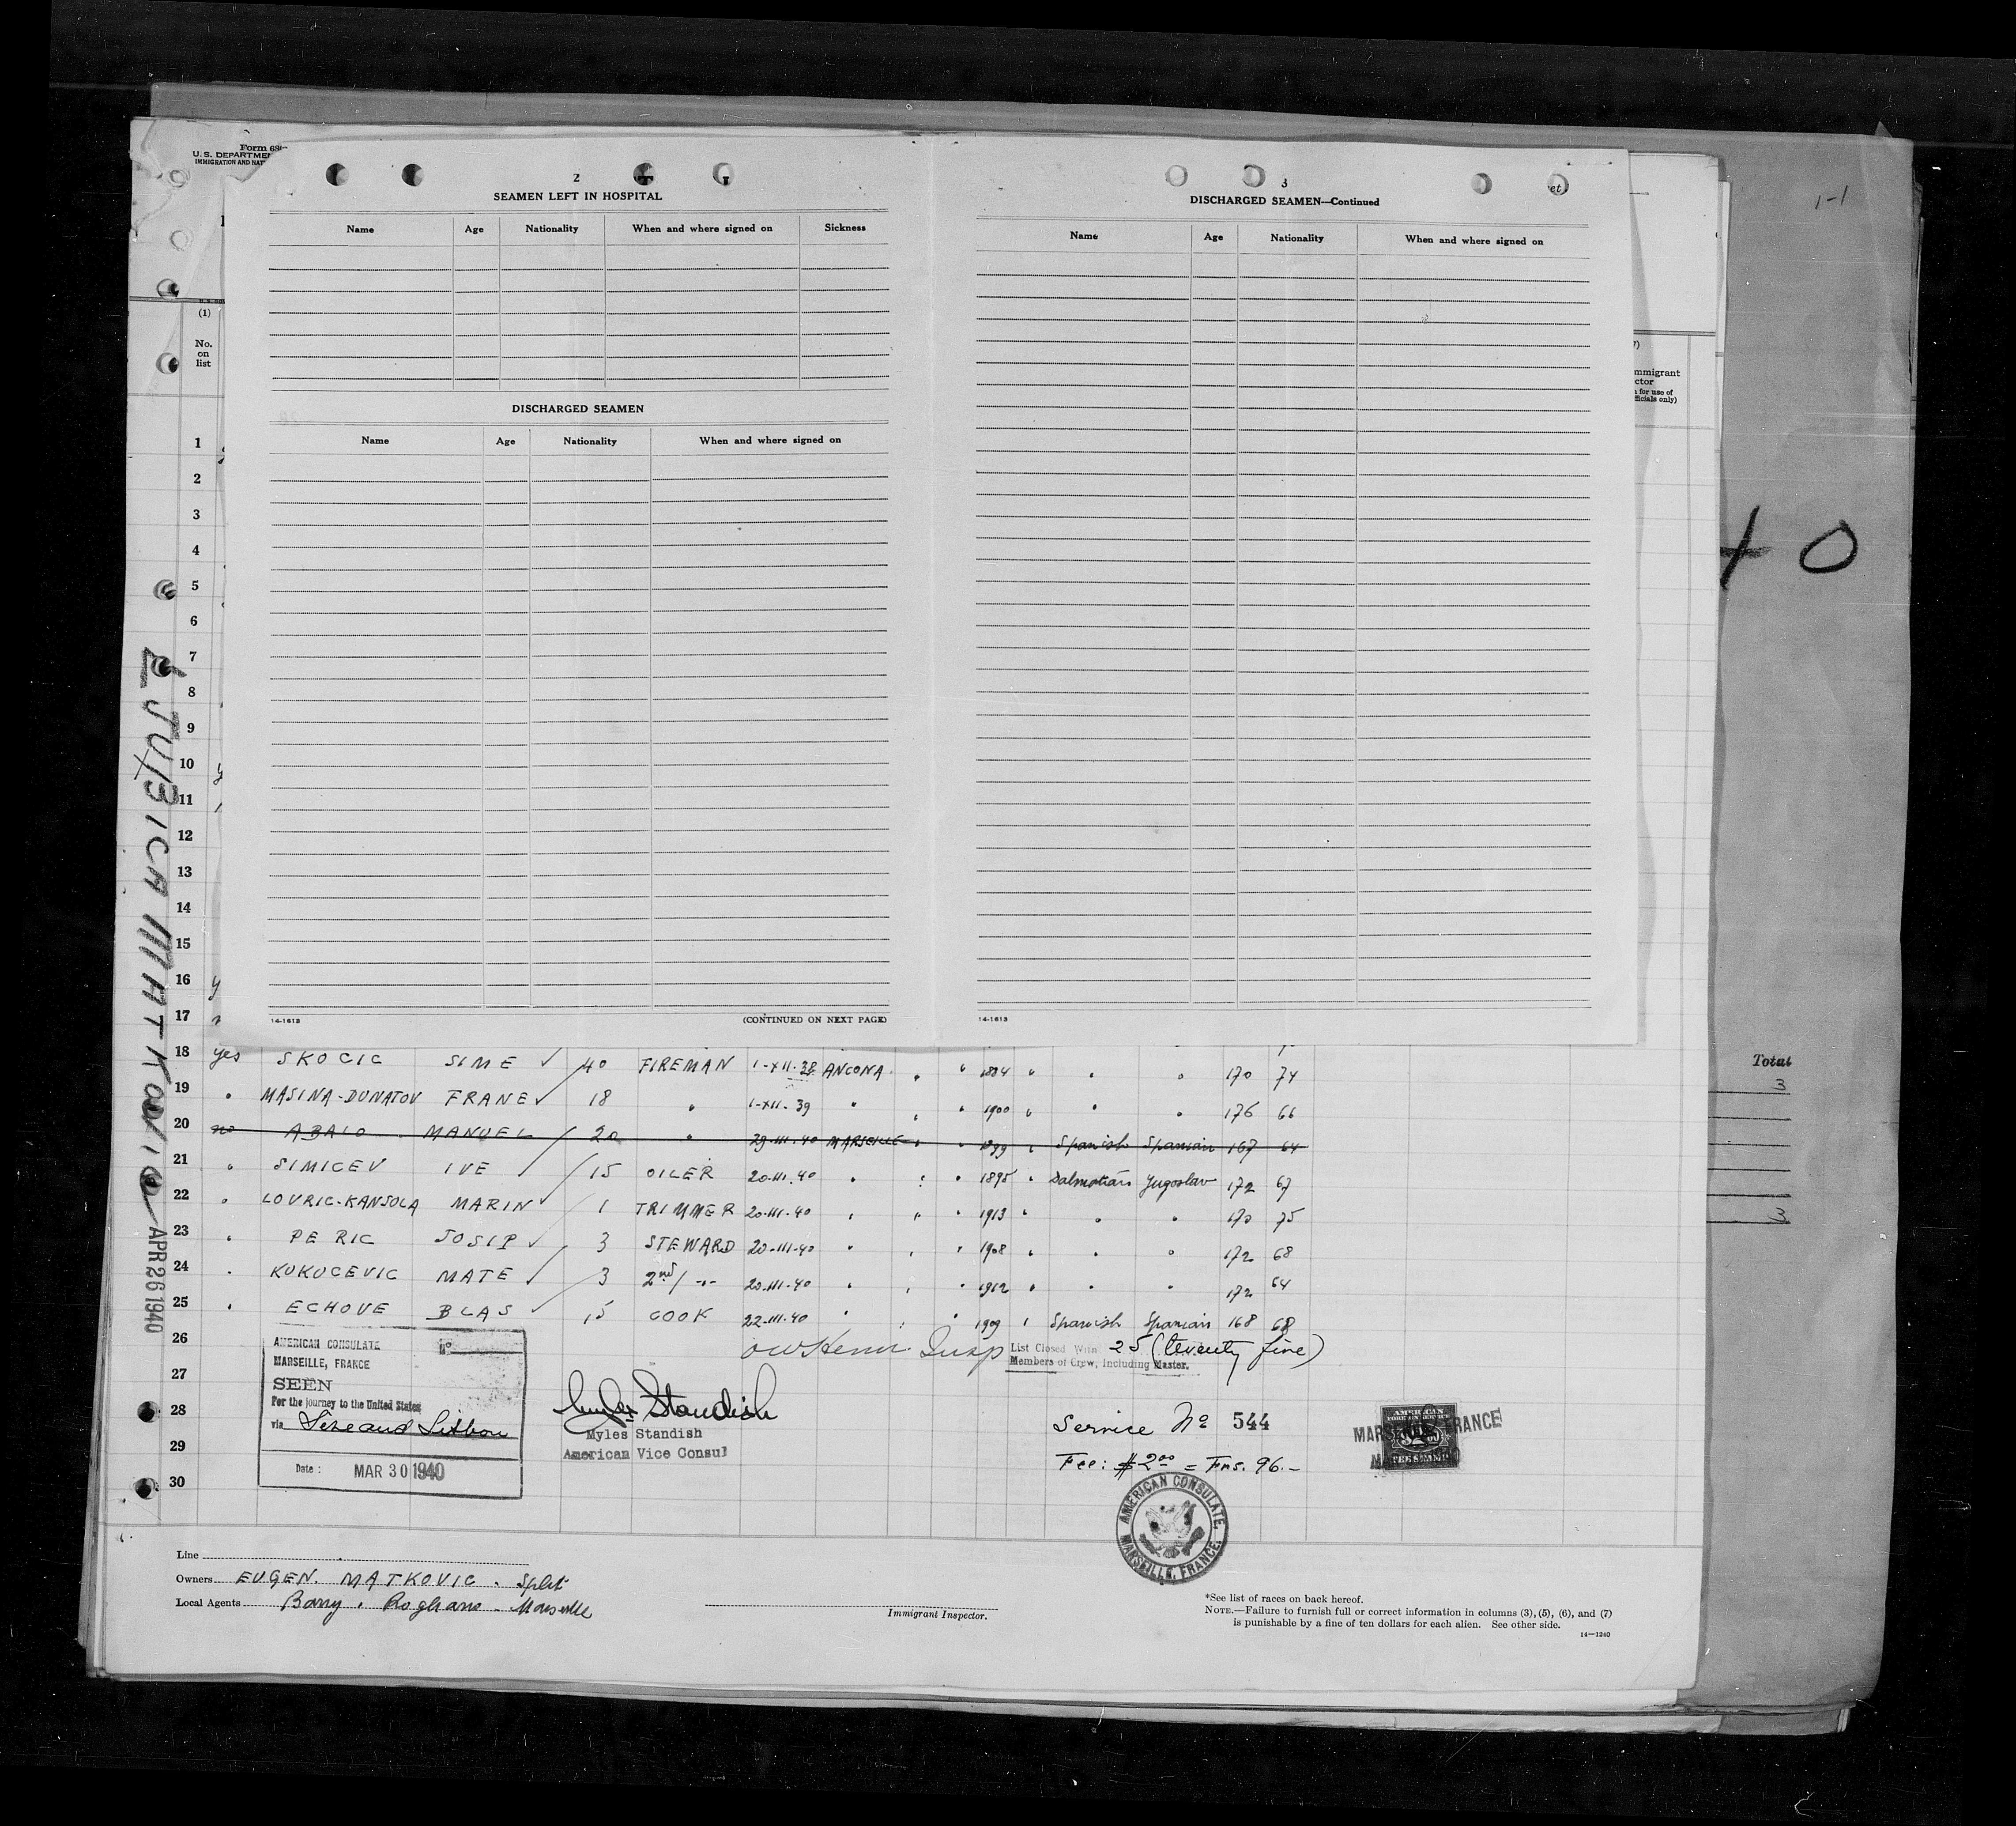 Form 68
U. S. DEPARTME
IMMIGRATION AND NAT
2
SEAMEN LEFT IN HOSPITAL
Name Age Nationality When and where signed on Sickness
DISCHARGED SEAMEN
Name Age Nationality When and where signed on
14-1613
(CONTINUED ON NEXT PAGE)
3
DISCHARGED SEAMEN—Continued
Name Age Nationality When and where signed on
14-1613
et
1-1
mmigrant
ctor
for use of
ficials only)
40
Total
3
3
(1)
No.
on
list
1
2
3
4
5
6
7
8
9
10
11
12
13
14
15
16
17
LJUBICA MATKOVIC
APR 26 1940
18 yes SKOCIC SIME ✓ 40 FIREMAN 1-XII-38 ANCONA " " 1884 " " " 170 74
19 " MASINA-DUNATOV FRANE ✓ 18 " 1-XII-39 " " " 1900 " " " 176 66
20 no ABALO MANUEL 20 " 29-III-40 MARSEILLE " " 1899 " Spanish Spanian 167 64
21 " SIMICEV IVE ✓ 15 OILER 20-III-40 " " " 1895 " Dalmatian Yugoslav 172 67
22 " LOVRIC-KANSOLA MARIN ✓ 1 TRIMMER 20-III-40 " " " 1913 " " " 170 75
23 " PERIC JOSIP ✓ 3 STEWARD 20-III-40 " " " 1908 " " " 172 68
24 " KUKUCEVIC MATE ✓ 3 2nd/ -"- 20-III-40 " " " 1912 " " " 172 64
25 " ECHOVE BLAS ✓ 15 COOK 22-III-40 " " " 1909 " Spanish Spanian 168 68
26
27
28
29
30
List Closed With 25 (twenty five)
Members of Crew, Including Master.
AMERICAN CONSULATE
MARSEILLE, FRANCE
SEEN
For the journey to the United States
via Sete and Lisbon
Date: MAR 30 1940
Myles Standish
Myles Standish
American Vice Consul
Service No 544
Fee: $2.00 = Frs. 96.-
MARSEILLE, FRANCE
AMERICAN
FEE STAMP
AMERICAN CONSULATE, MARSEILLE, FRANCE.
Line
Owners EUGEN. MATKOVIC. Split
Local Agents Barry. Rogliano - Marseille
Immigrant Inspector.
*See list of races on back hereof.
NOTE.—Failure to furnish full or correct information in columns (3), (5), (6), and (7)
is punishable by a fine of ten dollars for each alien. See other side.
14—1240